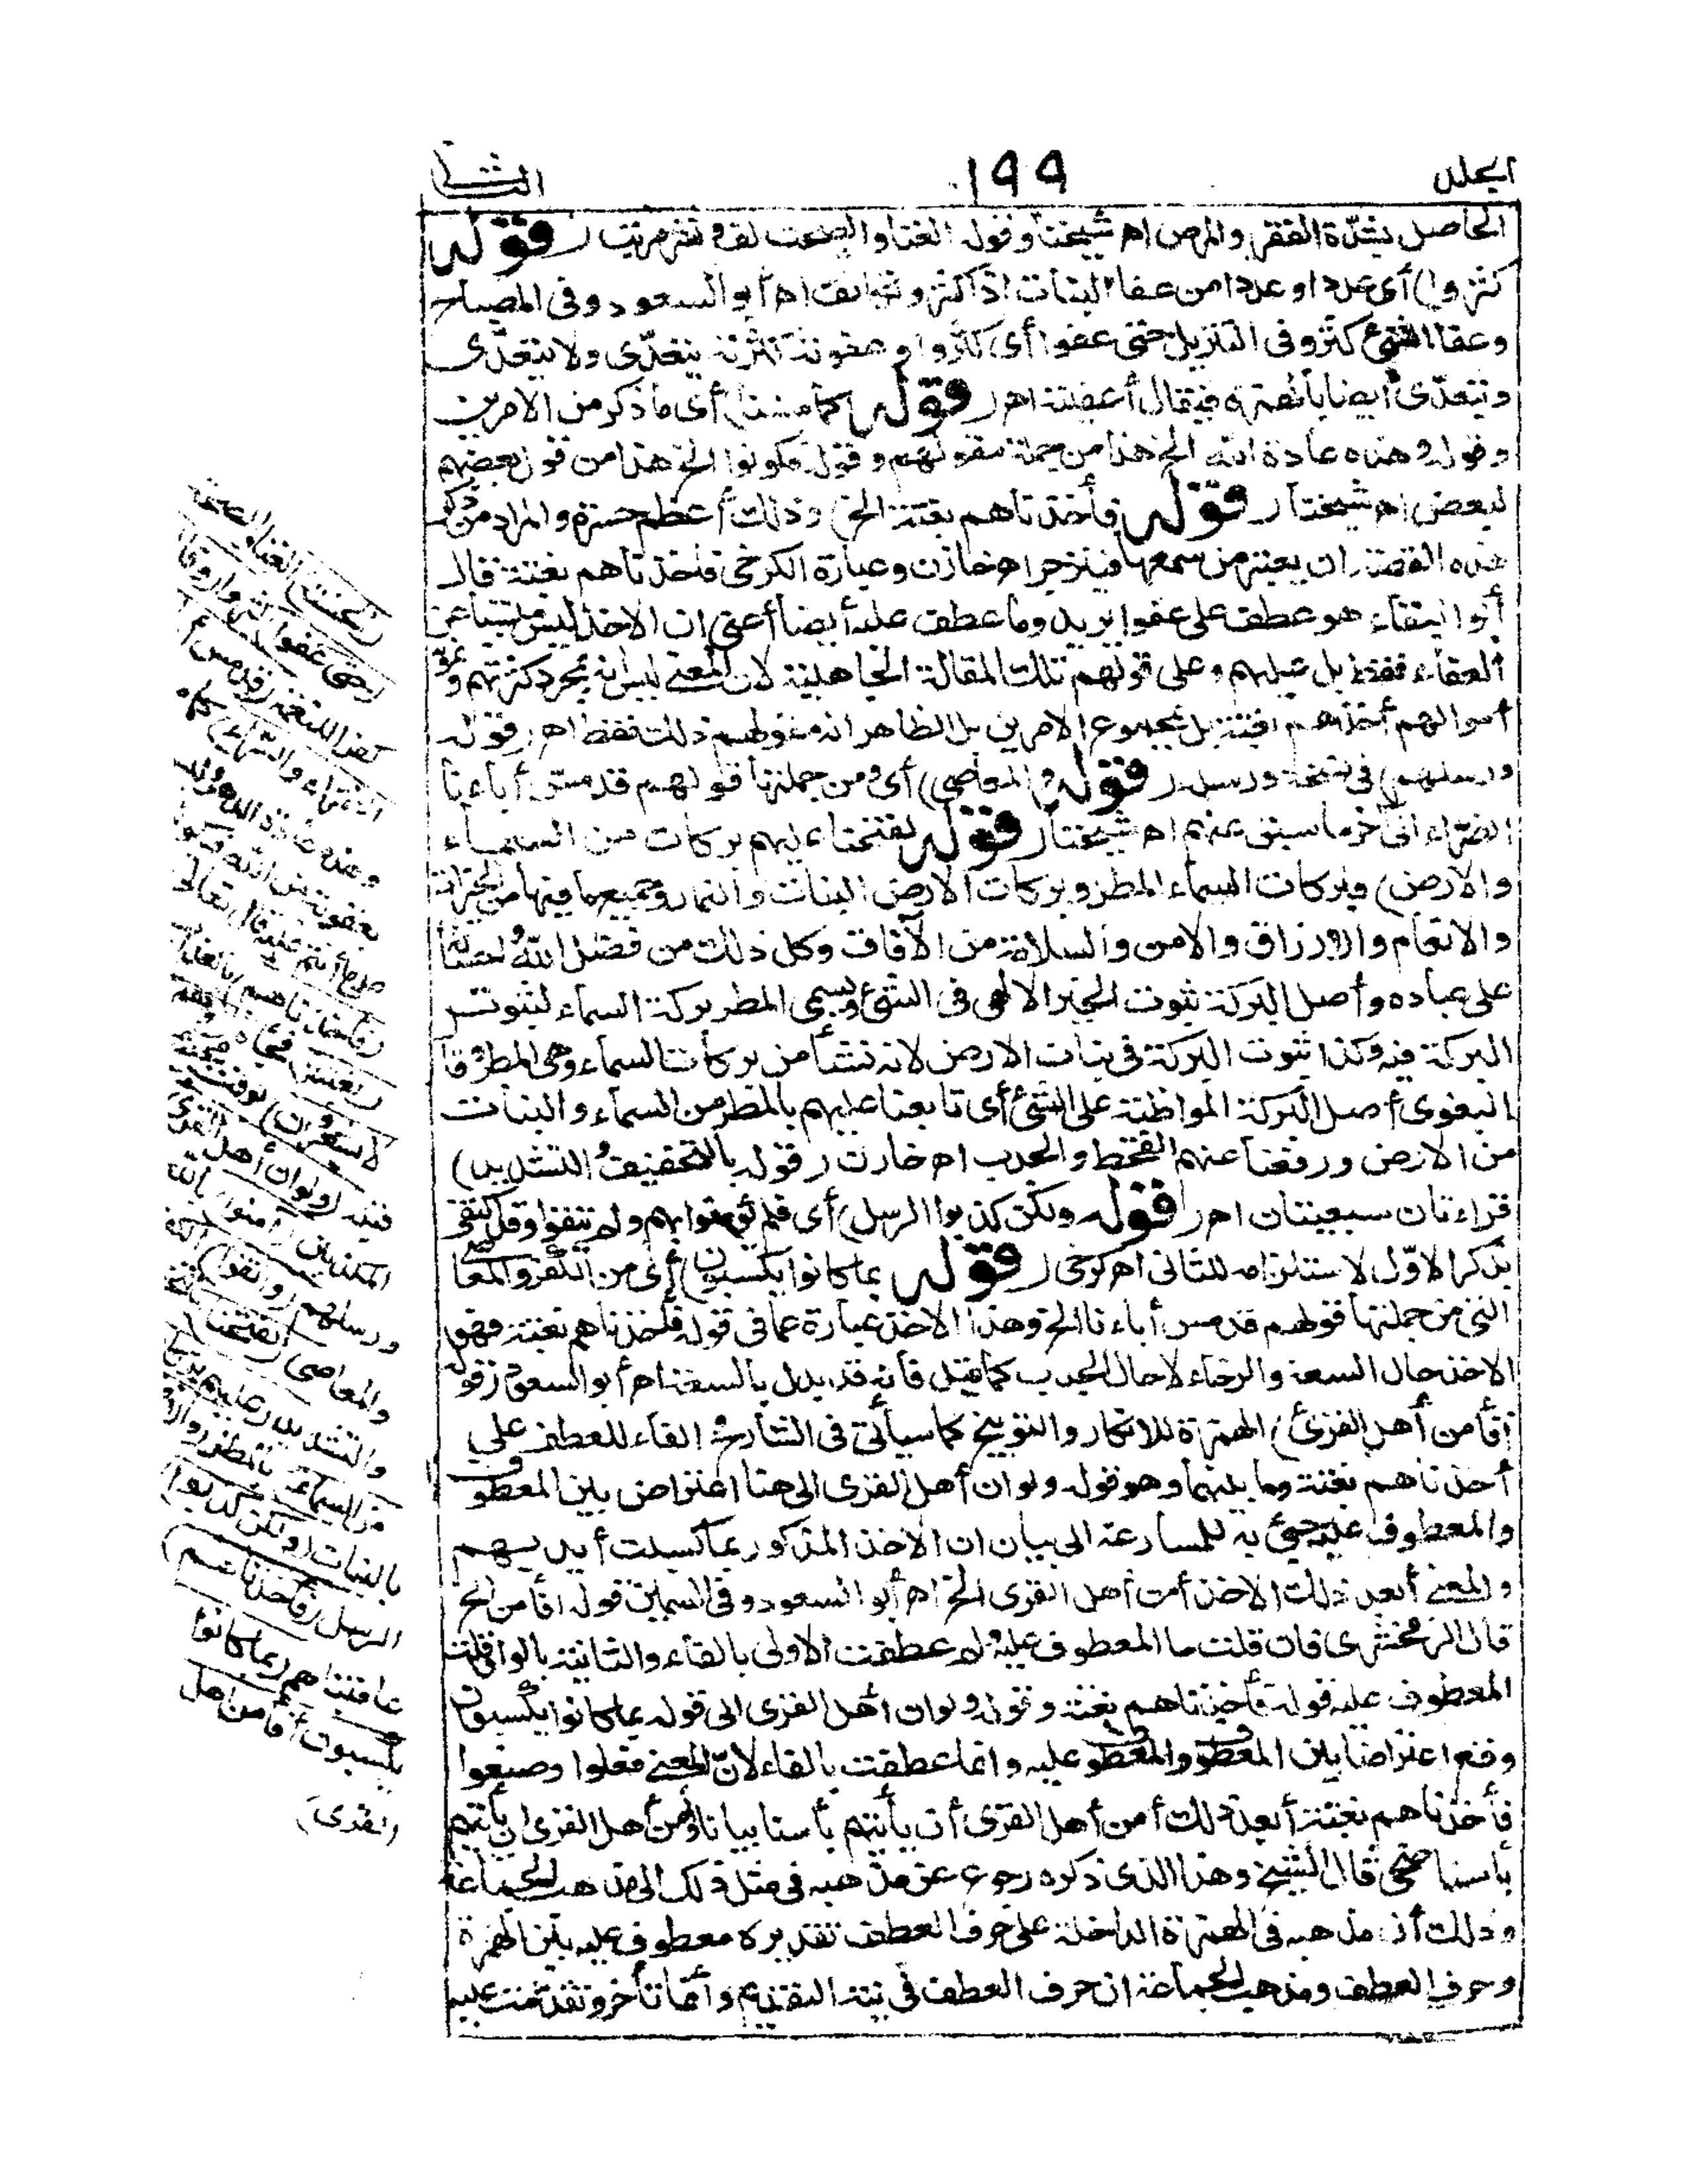 المجلد
١٩٩
الثانى
الحاصل بشدّة الفقر والمرض اه شيخنا وقوله الغنا والصحت لف ونشر مرتب ( قوله
كثروا) أى عددا وعددا من عفا النبات اذا كثر وتكاثف اه أبو السعود وفى المصباح
وعفا الشئ كثر وفى التنزيل حتى عفوا أى كثروا وعفوته كثرته يتعدّى ولا يتعدّى
ويتعدّى أيضا بالهمزة فيقال أعفيته اه ( قوله كما مسنا) أى ما ذكر من الامرين
وقوله وهذه عادة الله الخ هذا من جملة مقولهم وقوله فكونوا الخ هذا من قول بعضهم
لبعض اه شيخنا ( قوله فأخذناهم بغتة الخ) وذلك أعظم حسرة والمراد من ذكر
هذه القصة ان يعتبر من سمعها فينزجر اه خازن وعبارة الكرخى فأخذناهم بغتة قال
أبوا البقاء هو عطف على عفوا يريد وما عطف عليه أيضا أعنى ان الاخذ ليس متسببا عن
العفاء فقط بل عليهم وعلى قولهم تلك المقالة الجاهلية لان المعنى ليس انه بمجرد كثرتهم ونمو
أموالهم أخذناهم بغتة بل بمجموع الامرين بل الظاهر انه بقولهم ذلك فقط اه ( قوله
ورسلهم) فى نسخة ورسله ( قوله والمعاصى) أى ومن جملتها قولهم قد مسّ أباءنا
الضرّاء الى آخر ما سبق عنهم اه شيخنا ( قوله لفتحنا عليهم بركات من السماء
والارض) وبركات السماء المطر وبركات الارض النبات والثمار وجميع ما فيها من الخيرات
والانعام والارزاق والامن والسلامة من الآفات وكل ذلك من فضل الله
على عباده وأصل البركة ثبوت الخير الالهى فى الشئ ويسمى المطر بركة السماء لثبوت
البركة فيه وكذا ثبوت البركة فى نبات الارض لانه نشأ من بركات السماء وهى المطر وقال
البغوى أصل البركة المواظبة على الشئ أى تابعنا عليهم بالمطر من السماء والنبات
من الارض ورفعنا عنهم القحط والجدب اه خازن ( قوله بالتخفيف والتشديد)
قراءتان سبعيتان اه ( قوله ولكن كذبوا الرسل) أى فلم يؤمنوا بهم ولم يتقوا وقد اكتفى
بذكر الاوّل لاستلزامه للثانى اه كرخى ( قوله بما كانوا يكسبون) أى من الكفر والمعاصى
التى من جملتها قولهم قد مس أباءنا الخ وهذا الاخذ عبارة عما فى قوله فأخذناهم بغتة فهو
الاخذ حال السعة والرخاء لا حال الجدب كما قيل فانه قد بدل بالسعة اه أبو السعود ( قوله
أفأمن أهل القرى) الهمزة للانكار والتوبيخ كما سيأتى فى الشارح والفاء للعطف على
أخذناهم بغتة وما بينهما وهو قوله ولو ان أهل القرى الى هنا اعتراض بين المعطوف
والمعطوف عليه جئ به للمسارعة الى بيان ان الاخذ المذكور بما كسبت أيديهم
والمعنى أبعد ذلك الاخذ أمن أهل القرى الخ اه أبو السعود وفى السمين قوله أفأمن الخ
قال الزمخشرى فان قلت ما المعطوف عليه ولم عطفت الاولى بالفاء والثانية بالواو قلت
المعطوف عليه قوله فأخذناهم بغتة وقوله ولو ان أهل القرى الى قوله بما كانوا يكسبون
وقع اعتراضا بين المعطوف والمعطوف عليه وانما عطفت بالفاء لانّ المعنى فعلوا وصنعوا
فأخذناهم بغتة أبعد ذلك أمن أهل القرى أن يأتيهم بأسنا بياتا وأمن أهل القرى ان يأتيهم
بأسنا ضحى قال الشيخ وهذا الذى ذكره رجوع عن مذهبه فى مثل ذلك الى مذهب الجماعة
وذلك أن مذهبه فى الهمزة الداخلة على حرف العطف تقدير معطوف عليه بين الهمزة
وحرف العطف ومذهب الجماعة ان حرف العطف فى نية التقديم وأنما تأخر وتقدمت عليه
الغنا والصحة
(حتى عفوا) كثروا (وقالوا)
كفرا للنعمة (قد مس أباءنا
الضراء والسراء) كما
وهذه عادة الدهر
بعقوبة من الله فكونوا
على ما أنتم عليه قال تعالى
(فأخذناهم) بالعذاب
(بغتة) فجأة (وهم
لا يشعرون) بوقت مجيئه
قبله (ولو ان أهل القرى)
المكذبين (آمنوا) بالله
ورسلهم (واتقوا) الكفر
والمعاصى (لفتحنا)
والتشديد (عليهم بركات
من السماء) بالمطر (والارض)
بالنبات (ولكن كذبوا)
الرسل (فأخذناهم)
عاقبناهم (بما كانوا
يكسبون أفأمن أهل
القرى)